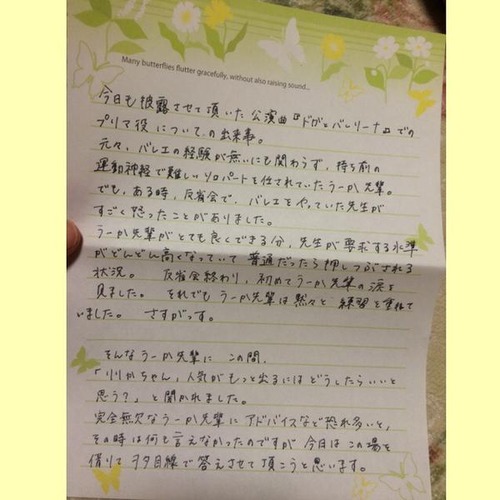 Many butterflies flutter gracefully, without also raising sound...
今日も披露させて頂いた公演曲『ドガとバレリーナ』での
プリマ役についての出来事。
元々、バレエの経験が無いにも関わらず、持ち前の
運動神経で難しいソロパートを任されていたうーか先輩。
でも、ある時、反省会で、バレエをやっていた先生が
すごく怒ったことがありました。
うーか先輩がとても良くできる分、先生が要求する水準
がどんどん高くなっていて普通だったら押しつぶされる
状況。 反省会終わり、初めてうーか先輩の涙を
見ました。 それでもうーか先輩は黙々と練習を重ねて
いました。 さすがっす。
そんなうーか先輩にこの間、
「りりかちゃん、人気がもっと出るにはどうしたらいいと
思う?」と聞かれました。
完全無欠なうーか先輩にアドバイスなど恐れ多いと、
その時は何も言えなかったのですが今日はこの場を
借りてヲタ目線で答えさせて頂こうと思います。